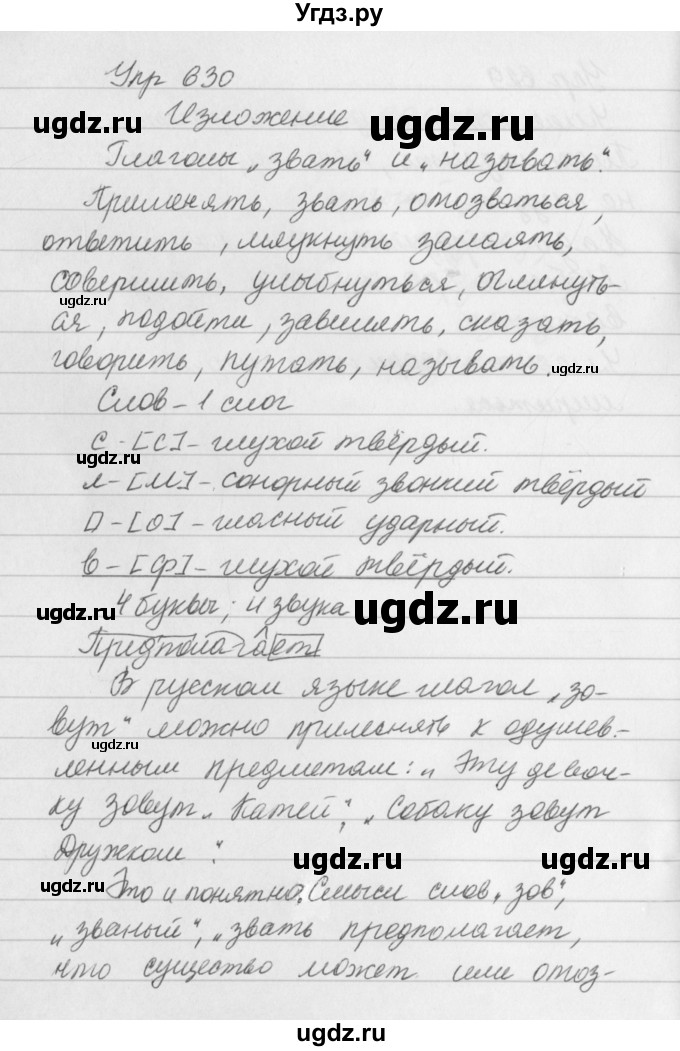 Угдз.ру
Упр 630
Изложение
Глаголы „звать" и „называть".
Применять, звать, отозваться,
ответить, мяукнуть залаять,
совершить, улыбнуться, оглянуть-
ся, подойти, завилять, сказать,
говорить, путать, называть.
Слов - 1 слог
с - [с] - глухой твёрдый.
л - [л] - сонорный звонкий твёрдый
о - [о] - гласный ударный.
в - [ф] - глухой твёрдый.
4 буквы; 4 звука
Предполагает
В русском языке глагол „зо-
вут" можно применять к одушев-
ленным предметам: „Эту девоч-
ку зовут „Катей", „Собаку зовут
Дружком".
Это и понятно: Смысл слов „зов",
„званый", „звать предполагает,
что существо может или отоз-
ugdz.ru
ugdz.ru
ugdz.ru
ugdz.ru
ugdz.ru
ugdz.ru
ugdz.ru
ugdz.ru
ugdz.ru
ugdz.ru
ugdz.ru
ugdz.ru